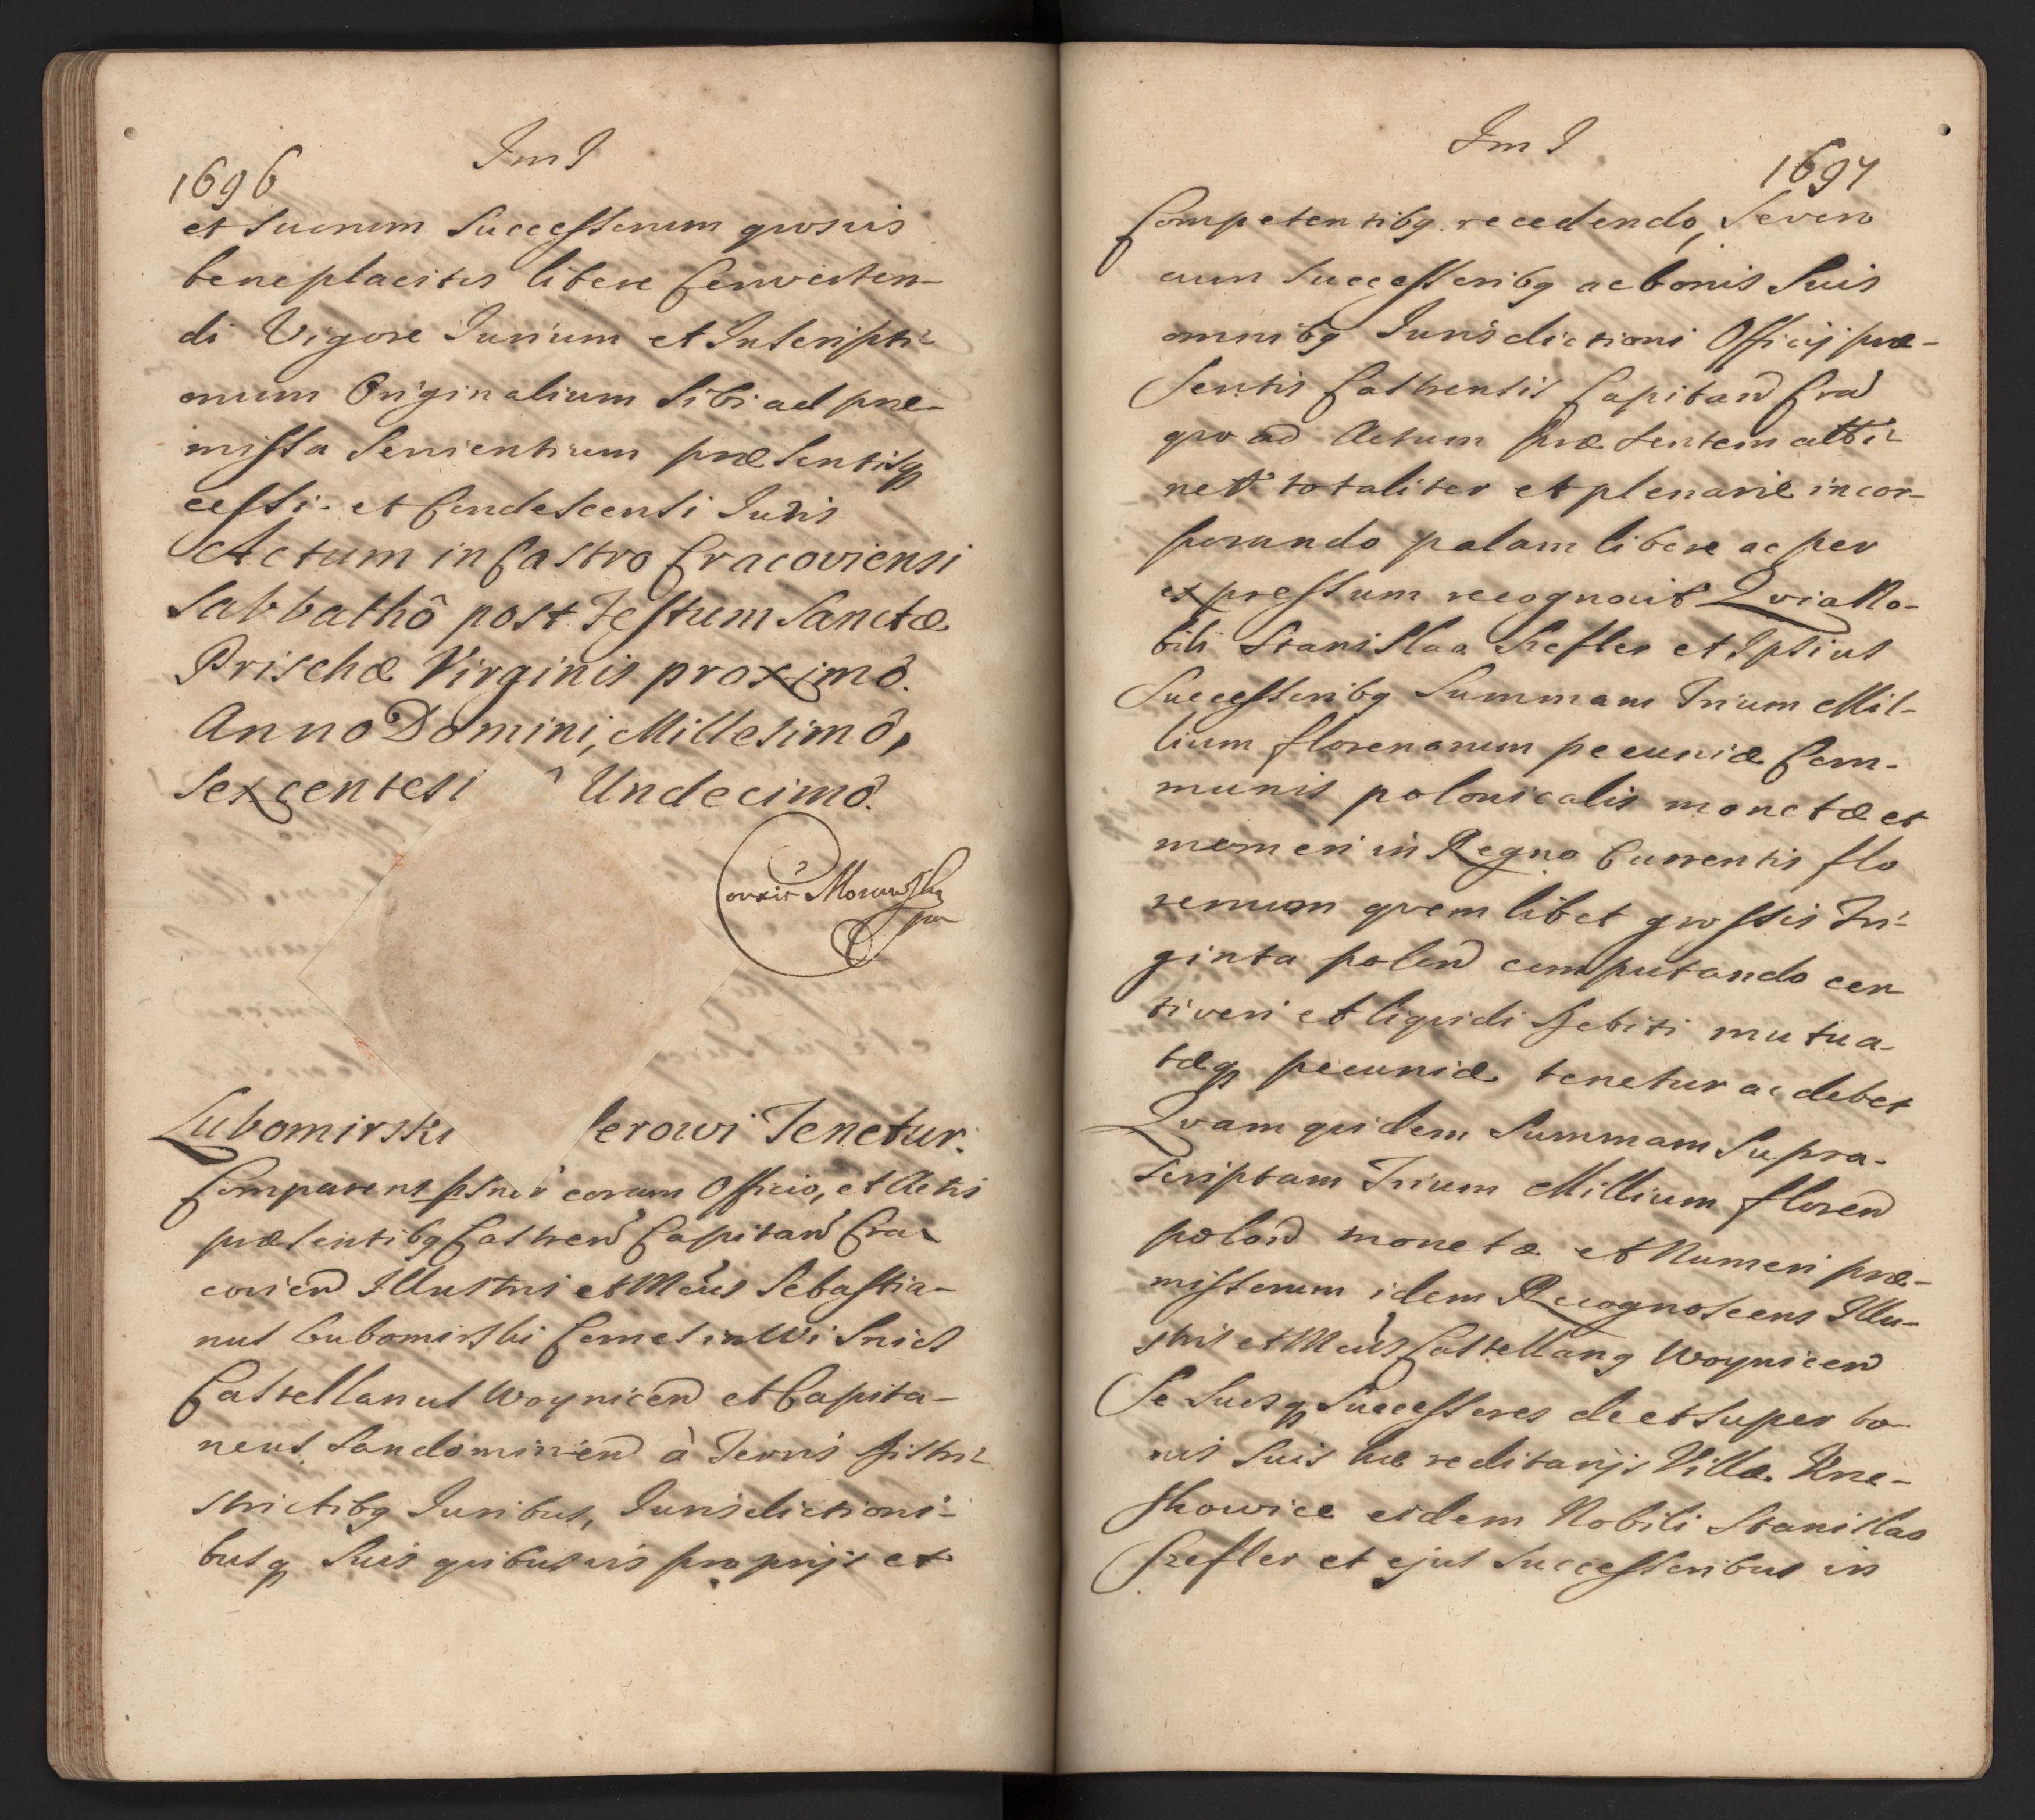 1696
Im J
et suorum Successorum qvosvis
beneplacitis libere Converten-
di Vigore Jurium et Inscripti-
onum Originalium sibi ad præ-
missa servientium præsentisq
cessi et Condescensi Juris
Actum in Castro Cracoviensi
Sabbathô post Festum Sanctæ
Prischæ Virginis proximô.
Anno Domini, Millesimô,
Sexcentesi Undecimô.
Lubomirski erowi Tenetur.
Comparens psnr coram Officio, et Actis
præsentibq Castren Capitan Cra
covien Illustris et Mcus Sebastia-
nus Lubomirski Comes in Wi Snicz
Castellanus Woynicen et Capita-
neus Sandomirien à Terris distri-
strictibq Juribus, Jurisdictioni-
busq Suis quibusvis proprijs et
Im J
1697
Competentibq recedendo, Severo
cum Successoribq ac bonis Suis
omnibq Jurisdictioni Officij præ-
sentis Castrensis Capitan Cra
qvo ad Actum præsentem atti-
net totaliter et plenarie incor-
porando palam libere ac per
expressum recognovit Qvia No-
bili Stanislao Szefler et Ipsius
Successoribq Summam Trium Mil-
lium florenorum pecuniæ Com-
munis polonicalis monetæ et
numeri in Regno Currentis flo
renum qvemlibet grossis Tri-
ginta polon computando cer
ti veri et liqvidi debiti mutua-
tæq pecuniæ tenetur ac debet
Qvam qvidem Summam Supra-
scriptam Trium Millium floren
polon monetæ et Numeri præ-
missorum idem Recognoscens Illu-
stris et Mcus Castellanq Woynicen
Se Suosq Successores de et super bo-
nis Suis hæreditarijs Villæ Krze-
skowice eidem Nobili Stanislao
Szefler et ejus Successoribus in